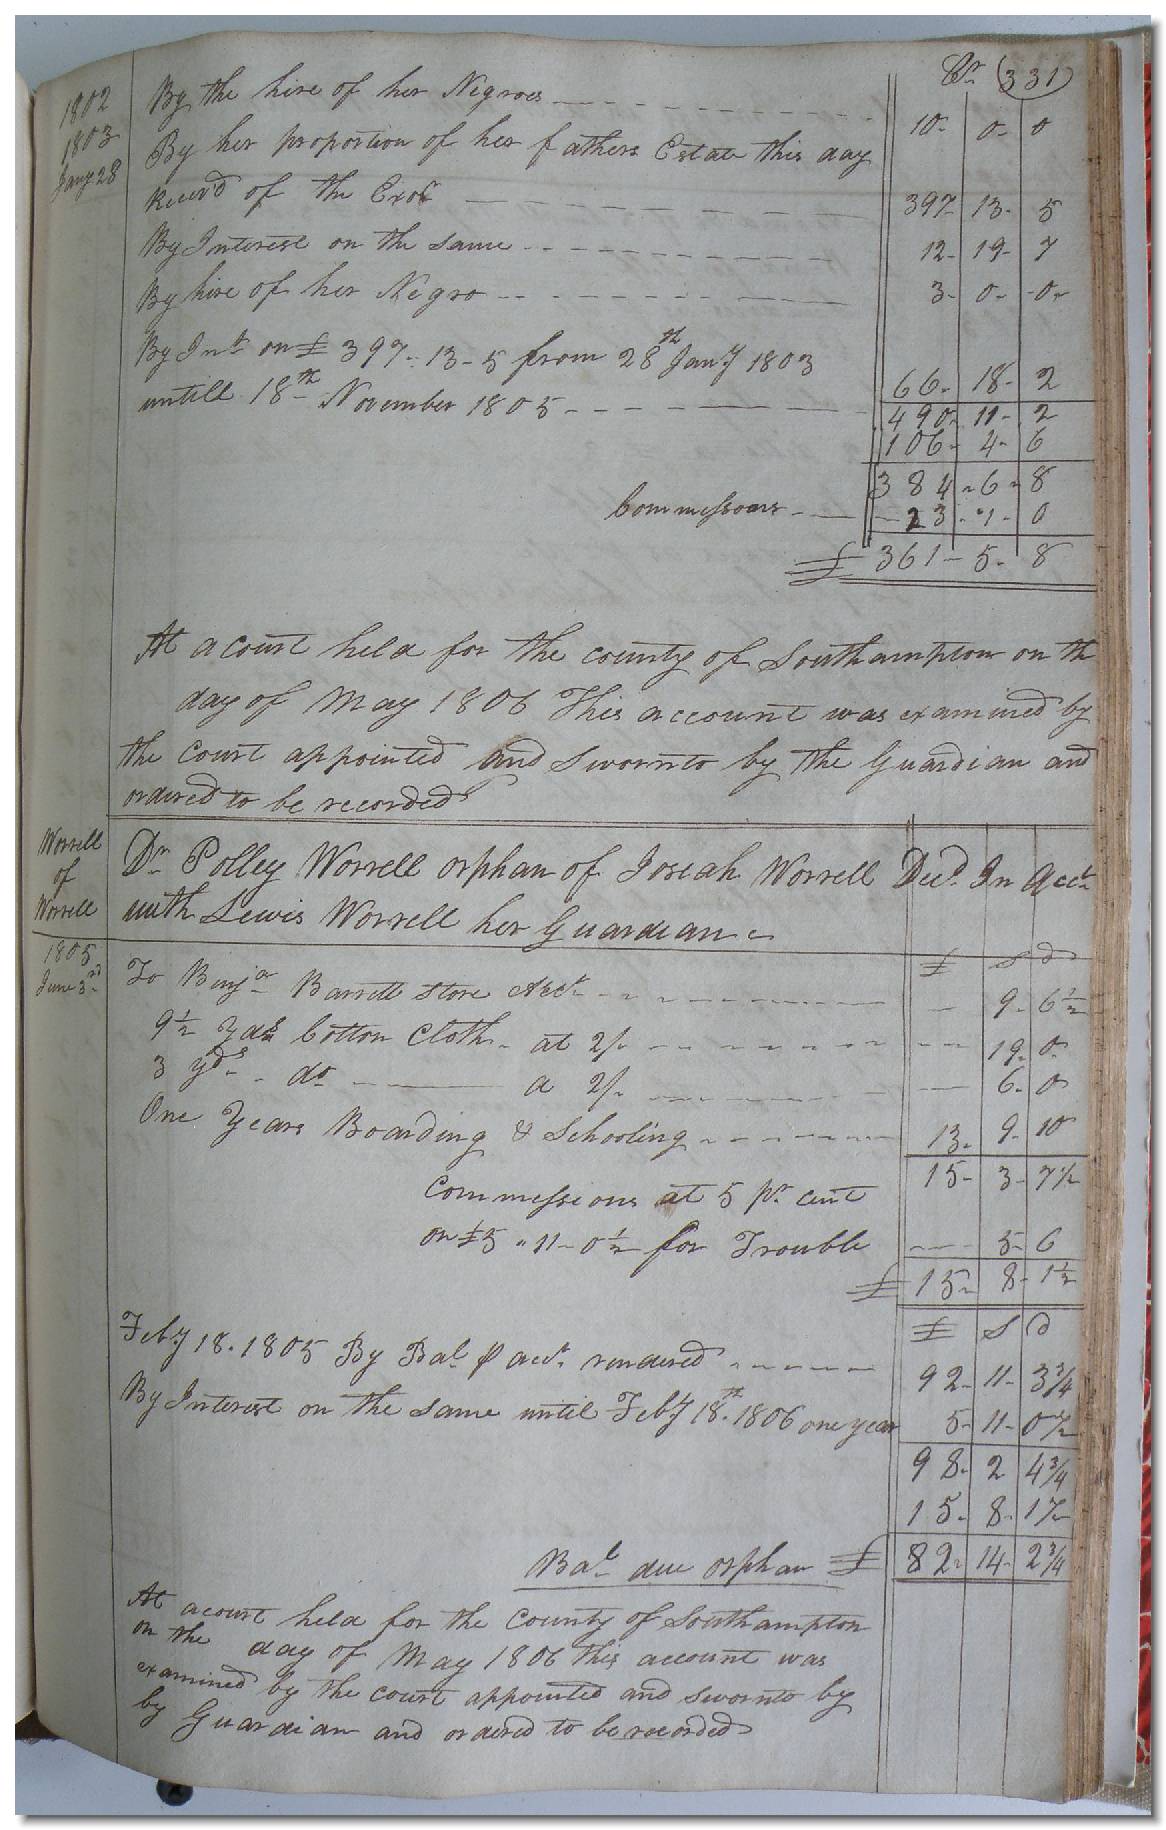 Cr (331)
1802 By the hire of her Negroes 10- 0- 0
1803 By her proportion of her fathers Estate this day
Jany 28 Receivd of the Exors 397- 13- 5
By Interest on the same 12- 19- 7
By hire of her Negro 3- 0- 0-
By Int on £ 397- 13- 5 from 28th Jany 1803
untill 18th November 1805 66- 18- 2
490- 11- 2
106- 4- 6
384- 6- 8
Commissions 23- 1- 0
£ 361- 5- 8
At a court held for the county of Southampton on the
day of May 1806 This account was examined by
the court appointed and sworn to by the Guardian and
ordered to be recorded
Worrell
of
Worrell
Dr Polley Worrell orphan of Josiah Worrell Decd. In Acct
with Lewis Worrell her Guardian
1805 £ S d
June 3rd To Benja Barrett store Acct 9- 6½
9½ Yds Cotton Cloth at 2/- 19- 0
3 yds do a 2/- 6- 0
One Years Boarding & Schooling 13- 9- 10
15- 3- 7½
Commissions at 5 pr cent
on £5 " 11- 0½ for Trouble 5- 6
£ 15- 8- 1½
£ S d
Feby 18. 1805 By Bal p act. rendered 92- 11- 3¾
By Interest on the same until Feby 18th 1806 one year 5- 11- 0½
98- 2 4¾
15- 8- 1½
Bal due orphan £ 82- 14- 2¾
At a court held for the County of Southampton
on the day of May 1806 this account was
examined by the court appointed and sworn to by
by Guardian and ordered to be recorded